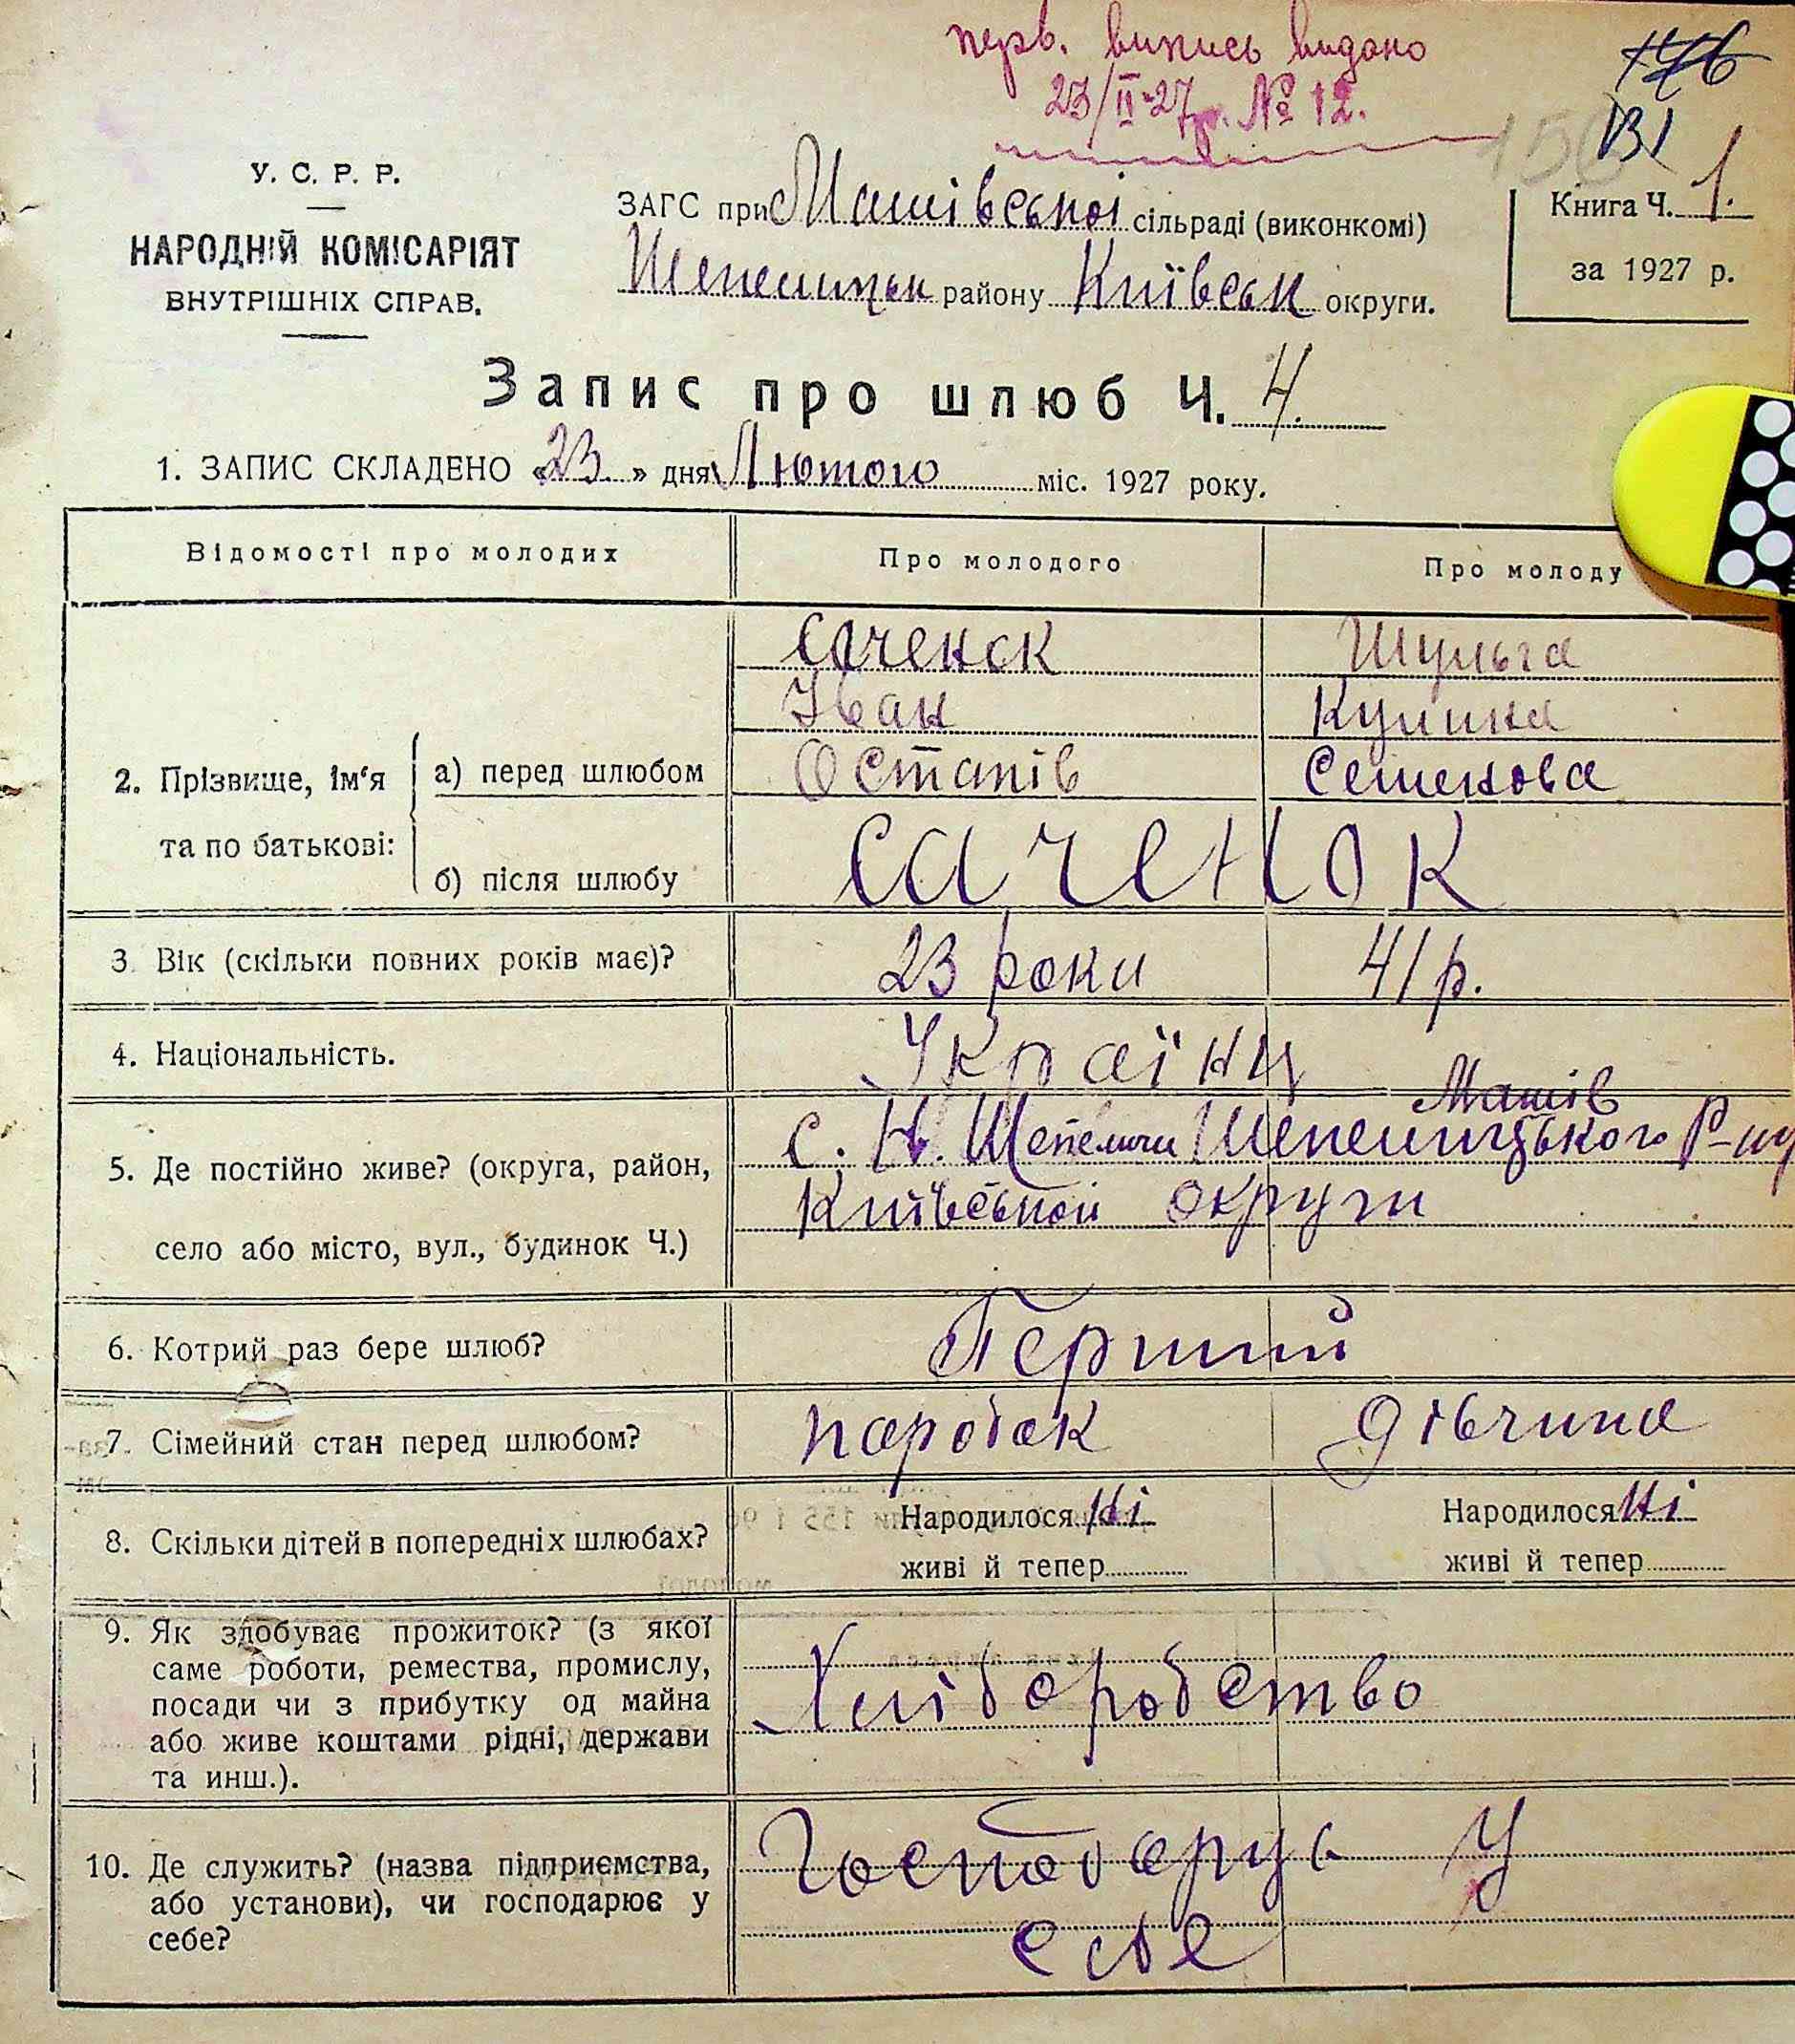 перв. випись видано
23/II-27р. № 12.
176
131
150
У. С. Р. Р.
НАРОДНІЙ КОМІСАРІЯТ
ВНУТРІШНІХ СПРАВ.
ЗАГС при Машівської сільраді (виконкомі)
Шепелицьк району Київськ округи.
Книга Ч. 1.
за 1927 р.
Запис про шлюб Ч. 4.
1. ЗАПИС СКЛАДЕНО «23» дня Лютого міс. 1927 року.
Відомості про молодих Про молодого Про молоду
Саченок Шульга
Іван Кулина
2. Прізвище, ім'я а) перед шлюбом Остапів Семенова
та по батькові: б) після шлюбу Саченок
3. Вік (скільки повних років має)? 23 роки 41 р.
4. Національність. Українц
Машів
5. Де постійно живе? (округа, район, с. Н. Шепеличи Шепелицького Р-ну
село або місто, вул., будинок Ч.) Київської округи
6. Котрий раз бере шлюб? Перший
7. Сімейний стан перед шлюбом? паробок дівчина
8. Скільки дітей в попередніх шлюбах? Народилося Ні Народилося Ні
живі й тепер живі й тепер
9. Як здобуває прожиток? (з якої
саме роботи, ремества, промислу,
посади чи з прибутку од майна
або живе коштами рідні, держави
та инш.).
Хліборобство
10. Де служить? (назва підприємства,
або установи), чи господарює у
себе?
Господарує У
себе